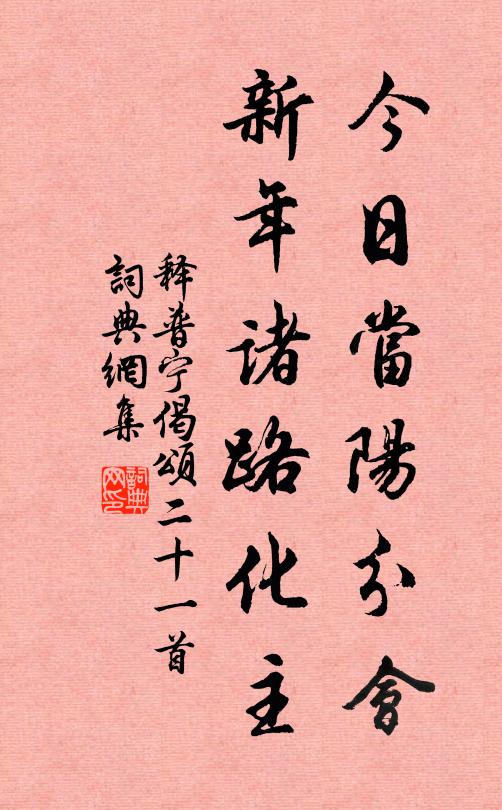 今日當陽分會
新年諸路化主
释普宁偈頌二十一首
詞典網集
詞典网印